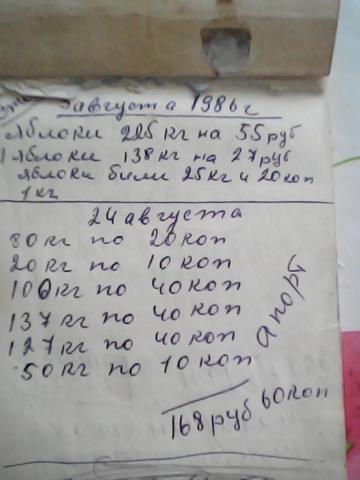 3 августа 1986г
яблоки 225 кг на 55 руб
яблоки 138 кг на 27 руб
яблоки били 25 кг и 20 коп
1 кг
24 августа
80 кг по 20 коп
20 кг по 10 коп
100 кг по 40 коп
137 кг по 40 коп
127 кг по 40 коп
50 кг по 10 коп
апорт
168 руб 60 коп